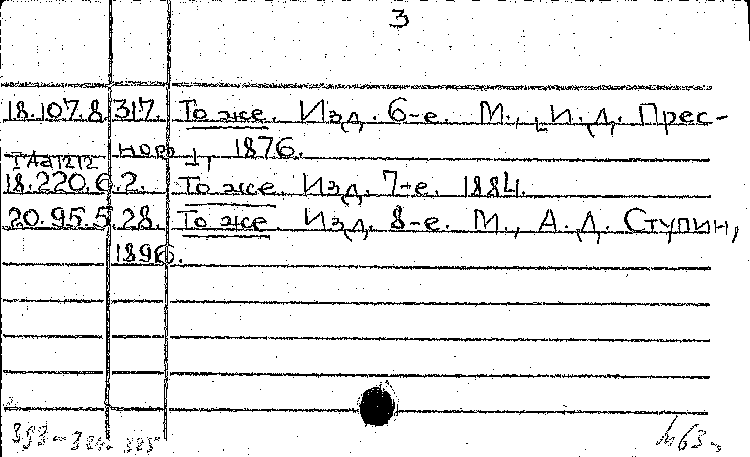 3
18.107.8.317. То же. Изд. 6-е. М., И. Д. Прес-
нов], 1876.
18.220.6.2. То же. Изд. 7-е. 1884.
20.95.5.28. То же. Изд. 8-е. М., А. Д. Ступин,
1896.